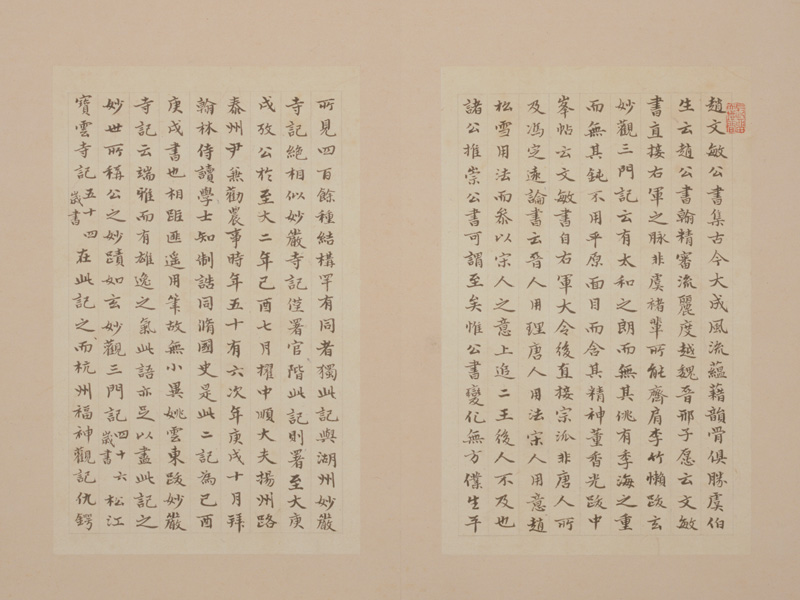 趙文敏公書集古今大成風流蘊藉韻骨俱勝虞伯
生云趙公書翰精審流麗度越魏晉邢子愿云文敏
書直接右軍之脉非虞褚輩所能齊肩李竹懶跋玄
妙觀三門記云有太和之朗而無其佻有季海之重
而無其鈍不用平原面目而含其精神董香光跋中
峯帖云文敏書自右軍大令後直接宗派非唐人所
及馮定遠論書云晉人用理唐人用法宋人用意趙
松雪用法而叅以宗人之意上追二王後人不及也
諸公推崇公書可謂至矣惟公書變化無方僕生平
所見四百餘種結構罕有同者獨此記與湖州妙嚴
寺記絕相似妙嚴寺記僅署官階此記則署至大庚
戌攷公於至大二年己酉七月擢中順大夫揚州路
泰州尹兼勸農事時年五十有六次年庚戌十月拜
翰林侍讀學士知制誥同脩國史是此二記為己酉
庚戌書也相距匪遙用筆故無小異姚雲東跋妙嚴
寺記云端雅而有雄逸之氣此語亦足以盡此記之
妙世所稱公之妙蹟如玄妙觀三門記四十六歲書松江
寶雲寺記五十四歲書在此記之前杭州福神觀記仇鍔